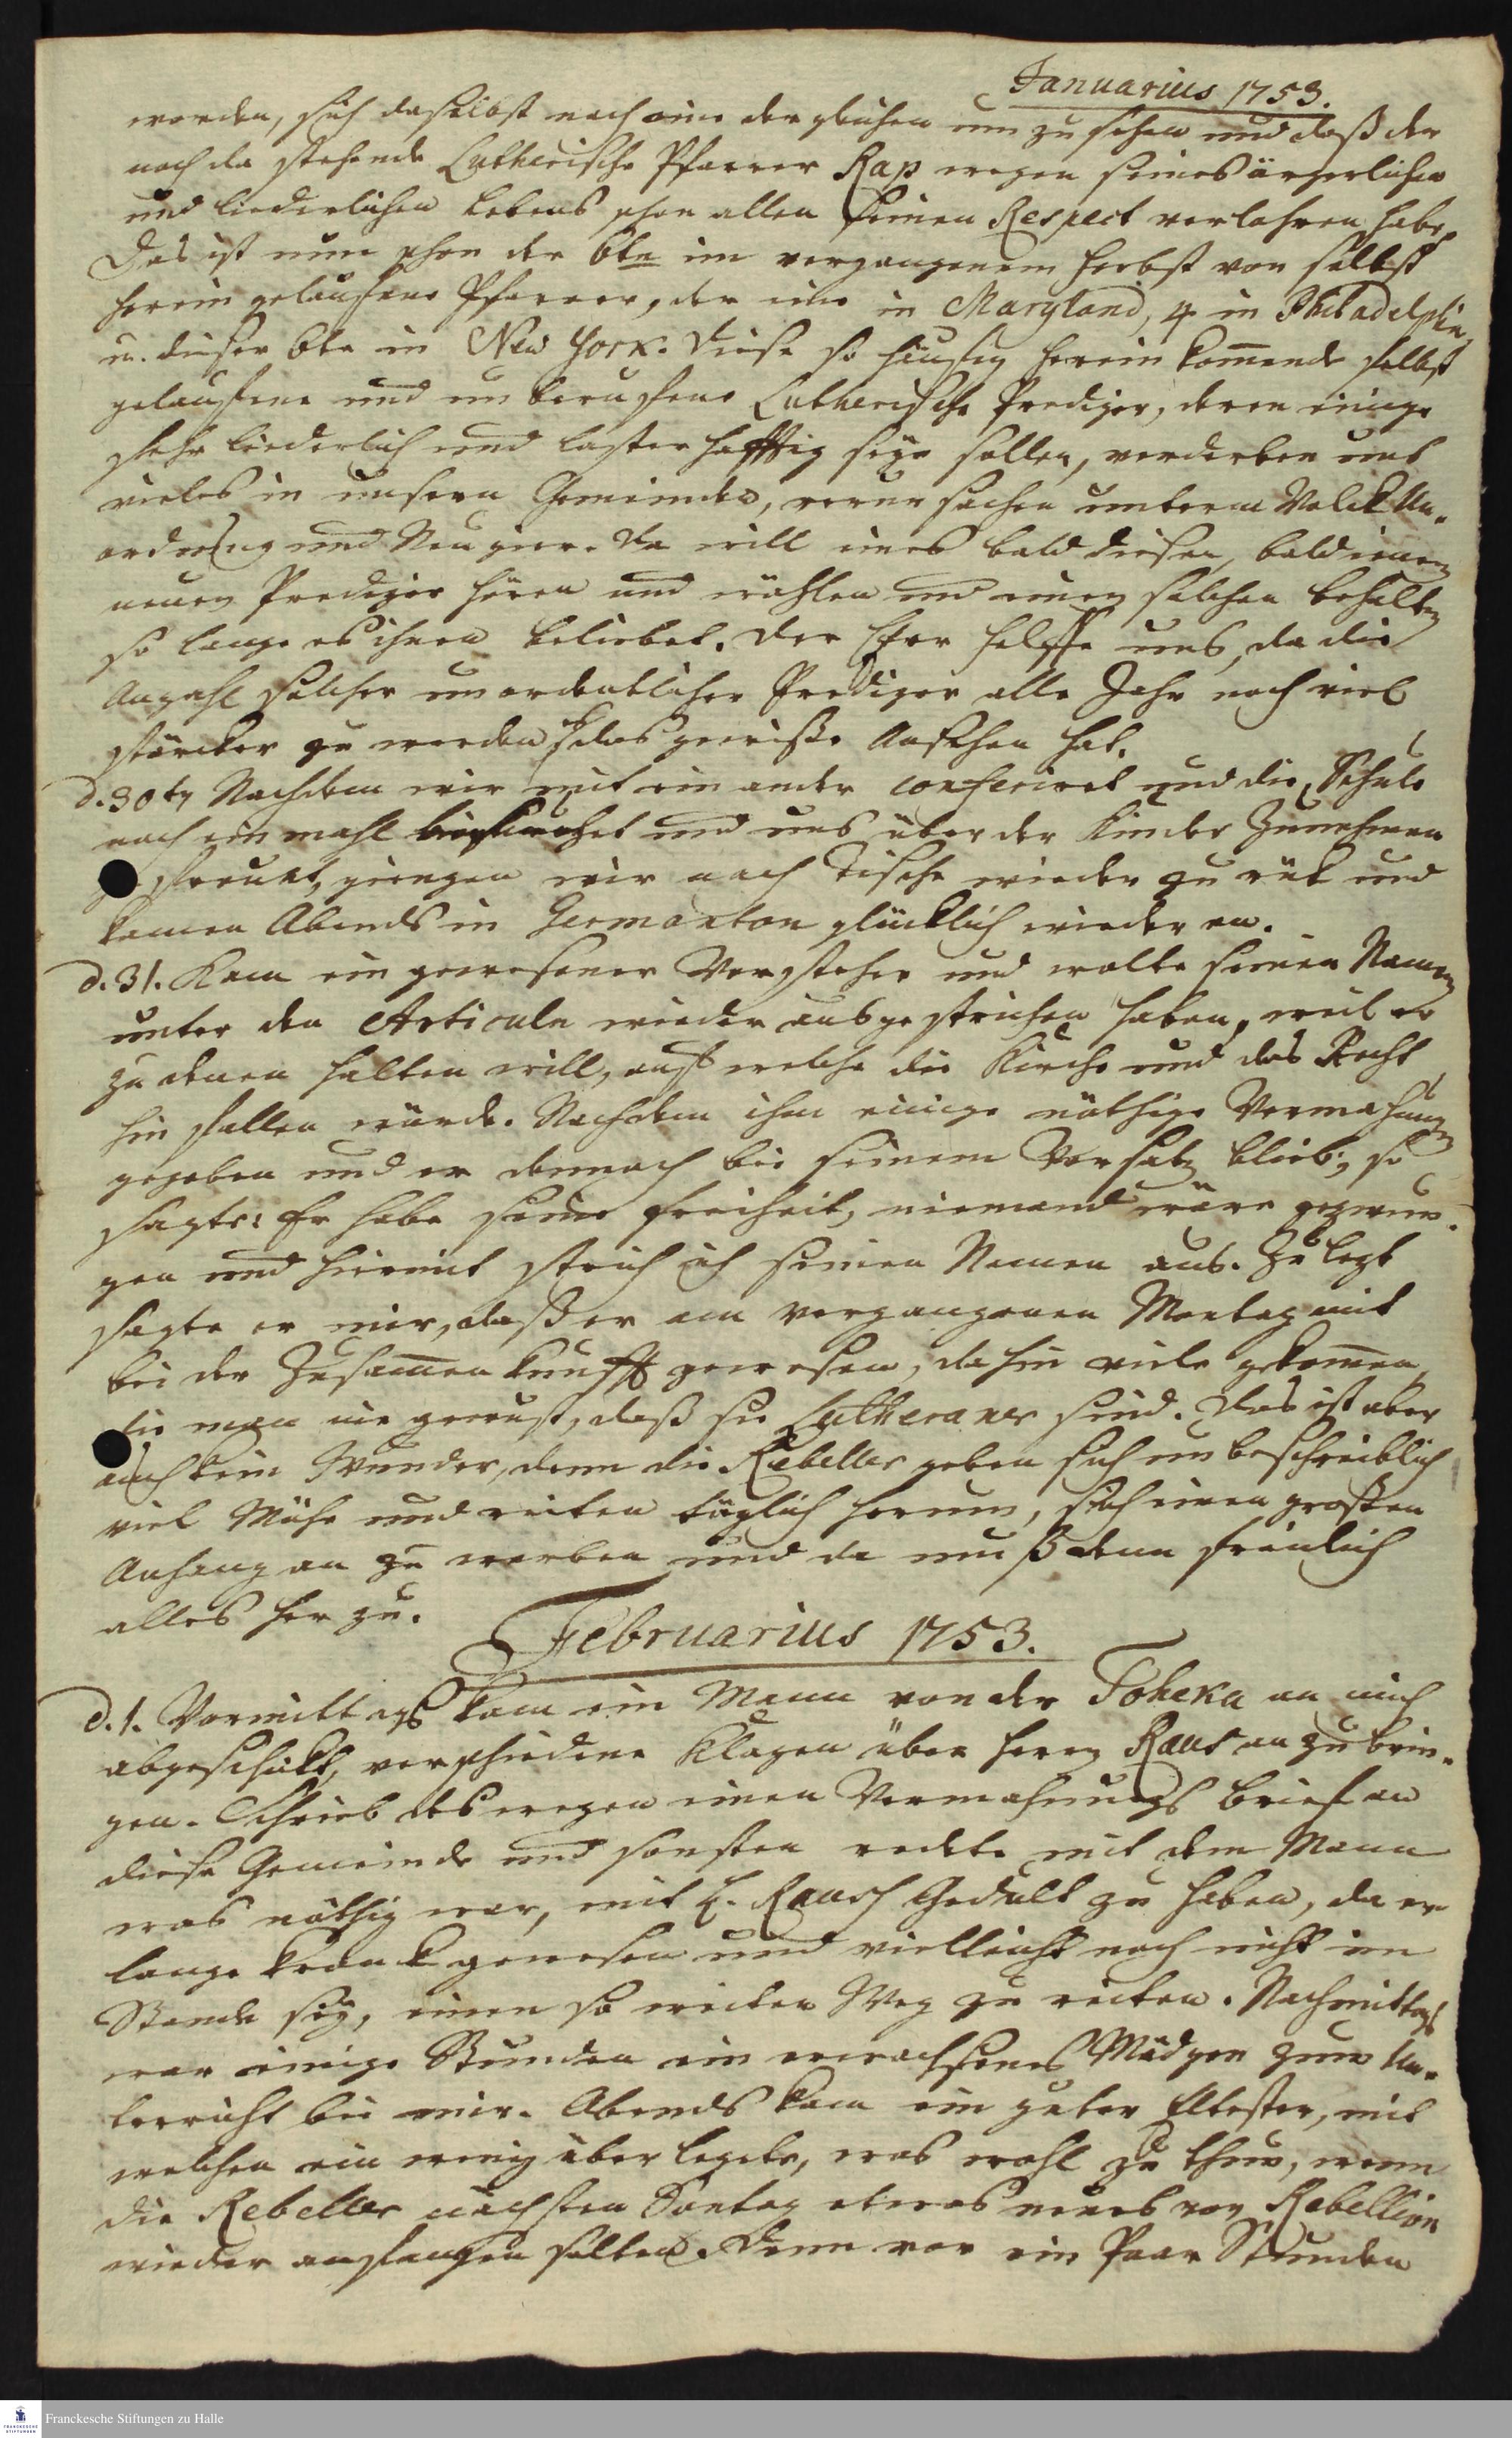 Januarius 1753.
worden, sich daselbst nach eine dergleichen um zu sehen und daß der
noch da stehende Lutherische Pfarrer Rap wegen seines ärgerlichen
und liederlichen Lebens schon allen seinen Respect verlohren habe.
Das ist nun schon der 6te im vergangenem Herbst von selbst
herein gelaufene Pfarrer, der eine in Maryland, 4 in Philadelphia
u. dieser 6te in New York. Diese so häufig herein kom̅ende selbst
gelaufene und unberufene Lutherische Prediger, deren einige
sehr liederlich und lasterhafftig seyn sollen, verderben uns
vieles in unsern Gemeinden, verursachen unterm Volck Un-
ordnung und Neugier. Da will eines bald diesen, bald jenen
neuen Prediger hören und wählen und einen solchen behalten
so lange es ihnen beliebet. Der Herr helffe uns, da die
Anzahl solcher unordentlicher Prediger alle Jahr noch viel
stärcker zu werden das gewisse Ansehen hat.
d. 30ten Nachdem wir mit ein ander conferiret und die Schule
noch ein mahl besuchet und uns über der Kinder Zunehmen
gefreuet, giengen wir nach Tische wieder zu rük und
kamen Abends in Germanton glücklich wieder an.
d. 31. Kam ein gewesener Vorsteher und wolte seinen Namen
unter den Articuln wieder ausgestrichen haben, weil er
zu denen halten will, auf welche die Kirche und das Recht
hin fallen würde. Nachdem ihm einige nöthige Vermahnung
gegeben und er dennoch bei seinem Vorsatz blieb, so
sagte: Er habe seine Freiheit, niemand wäre gezwun-
gen und hiermit strich ich seinen Namen aus. Zu lezt
sagte er mir, daß er am vergangenen Montag mit
bei der Zusam̅enkunfft gewesen, dahin viele gekom̅en,
die man nie gewust, daß sie Lutheraner sind. Das ist aber
auch kein Wunder, denn die Rebeller geben sich unbeschreiblich
viel Mühe und reiten täglich herum, sich einen großen
Anhang an zu werben und da muß denn freilich
alles her zu.
Februarius 1753.
d. 1. Vormittags kam ein Mann von der Toheka an mich
abgeschickt, verschiedene Klagen über Herrn Raus an zu brin-
gen. Schrieb deswegen einen Vermahnungs brief an
diese Gemeinde und sonsten redete mit dem Mann
was nöthig war, mit H. Rausch Gedult zu haben, da er
lange krank gewesen und vielleicht noch nicht im
Stande sey, einen so weiten Weg zu reiten. Nachmittags
war einige Stunden ein erwachsenes Mädgen zum Un-
terricht bei mir. Abends kam ein guter Eltester, mit
welchen ein wenig überlegte, was wohl zu thun, wenn
die Rebeller nächsten Sontag etwas neues von Rebellion
wieder anfangen solten. Denn vor ein Paar Stunden
Franckesche Stiftungen zu Halle